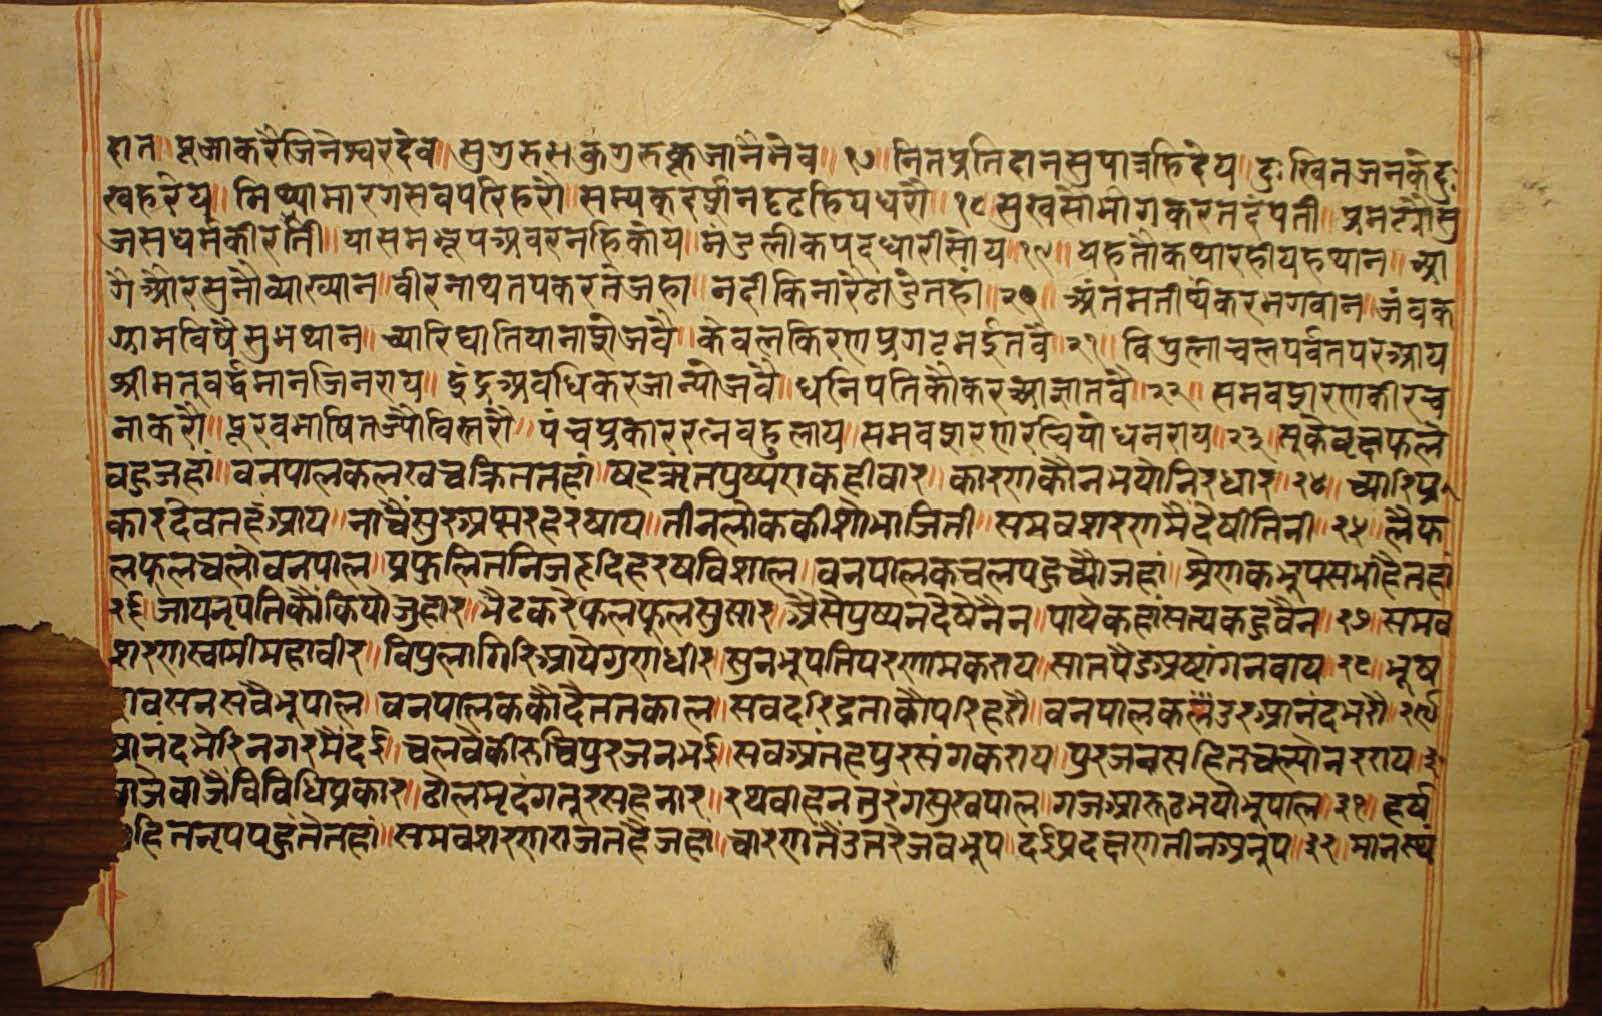 हात॥ पूजाकरैजिनेश्वरदेव॥ सुगुरुसकुगुरुकूजानैभेव॥१७॥ नितप्रतिदानसुपात्रहिदेय॥ दुःखितजनकेदुः
खहरेय॥ मिथ्यामारगसवपरिहरौ॥ सम्यकदर्शनदृढहियधरौ॥१८॥ सुखसौंभोगकरतदंपती॥ प्रगटरौसु
जसधर्मकीरती॥ यासमभूपअवरनहिकोय॥ मंडलीकपदधारीसोय॥१९॥ यहतौकथारहीयहथान॥ आ
गैऔरसुनौव्याख्यान॥ वीरनाथतपकरतेजहां॥ नदीकिनारैठाडेतहां॥२०॥ अंतमतीर्थंकरभगवान॥ जंवक
ग्रामविषैसुभथान॥ च्यारिघातियानाशेजवै॥ केवलकिरणप्रगटभईतवै॥२१॥ विपुलाचलपर्वतपरआय
श्रीमतवर्द्धमानजिनराय॥ इंद्रअवधिकरजान्यौजवै॥ धनिपतिकौकरआज्ञातवै॥२२॥ समवशरणकीरच
नाकरौ॥ पूरवभाषितज्यौंविस्तरौ॥ पंचप्रकाररत्नवहुलाय॥ समवशरणरचियौधनराय॥२३॥ सूकेवृक्षफले
वहुजहां॥ वनपालकलखचक्रिततहां॥ षटऋतपुष्पएकहीवार॥ कारणकौनभयौनिरधार॥२४॥ च्यारिप्र
कारदेवतहंआय॥ नाचैंसुरअप्सरहरषाय॥ तीनलोककीशोभाजिती॥ समवशरणमैदेषीतिती॥२५॥ लैफ
लफूलचलौवनपाल॥ प्रफुलितनिजहृदिहरषविशाल॥ वनपालकचलपहुच्यौजहां॥ श्रेणकभूपसभाहैतहां
२६॥ जायनृपतिकौंकियौजुहार॥ भेटकरैफलफूलसुसार॥ ऐसेपुष्पनदेषेनैन॥ पायेकहांसत्यकहुवैन॥२७॥ समव
शरणस्वामीमहावीर॥ विपुलागिरिआयेगुणधीर॥ सुनभूपतिपरणामकराय॥ सातपैडअष्टांगनवाय॥२८॥ भूष
णवसनसवैभूपाल॥ वनपालककौदैततकाल॥ सवदरिद्रताकौपरिहरौ॥ वनपालकउरआनंदभरौ॥२९॥
आनंदभेरिनगरमैंदई॥ चलवेकीरुचिपुरजनभई॥ सवअंतहपुरसंगकराय॥ पुरजनसहितचल्यौनरराय॥३०
वाजेवाजैविविधिप्रकार॥ ढोलमृदंगतूरसहनार॥ रथवाहनतुरंगसुखपाल॥ गजआरूढभयौभूपाल॥३१॥ हर्ष
हितनृपपहुंतेतहां॥ समवशरणराजतहैजहां॥ वारणतैंउतरेजवभूप॥ दईप्रदक्षणतीनअनूप॥३२॥ मानस्थं